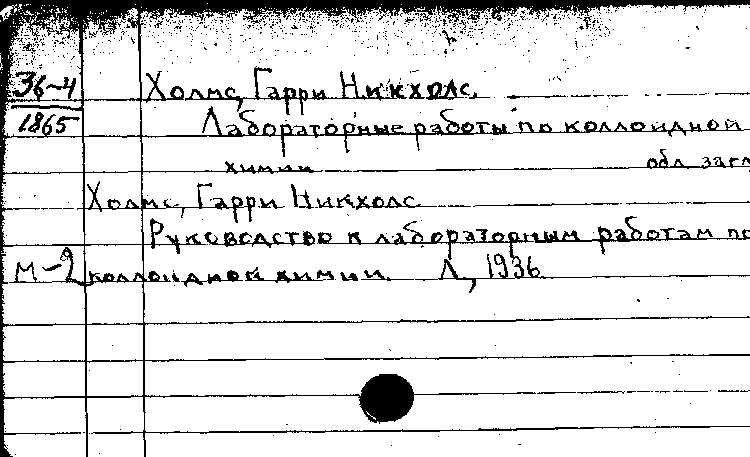 36-4 Холмс, Гарри Никхолс.
1865 Лабораторные работы по коллоидной
химии обл. загл
Холмс, Гарри Никхолс
Руководство к лабораторным работам по
М-2 коллоидной химии. Л, 1936